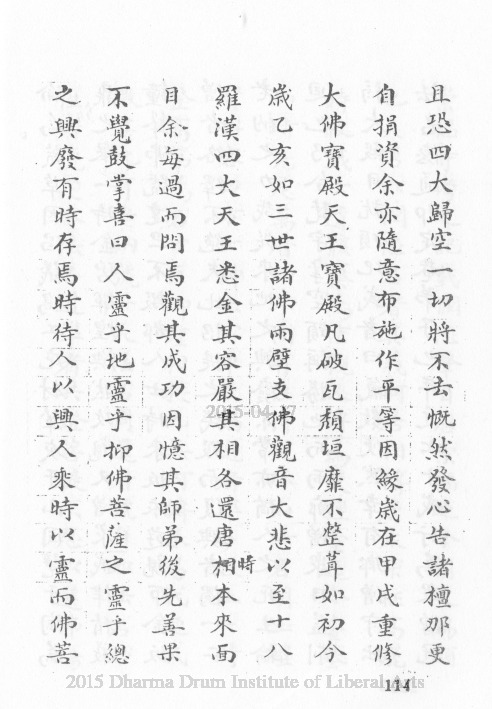 且恐四大歸空一切將不去慨然發心告諸檀那更
自捐資余亦隨意布施作平等因緣歲在甲戌重修
大佛寶殿天王寶殿凡破瓦頹垣靡不整葺如初今
歲乙亥如三世諸佛兩壁支佛觀音大悲以至十八
羅漢四大天王悉金其容嚴其相各還唐相時本來面
目余每過而問焉觀其成功因憶其師弟後先善果
不覺鼓掌喜曰人靈乎地靈乎抑佛菩薩之靈乎總
之興廢有時存焉時待人以興人乘時以靈而佛菩
2015-04-17
114
2015 Dharma Drum Institute of Liberal Arts